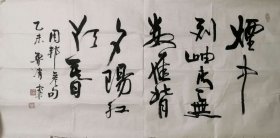 煙中
列岫青無
數雁背
夕陽红
欲暮
周邦彦句
乙未